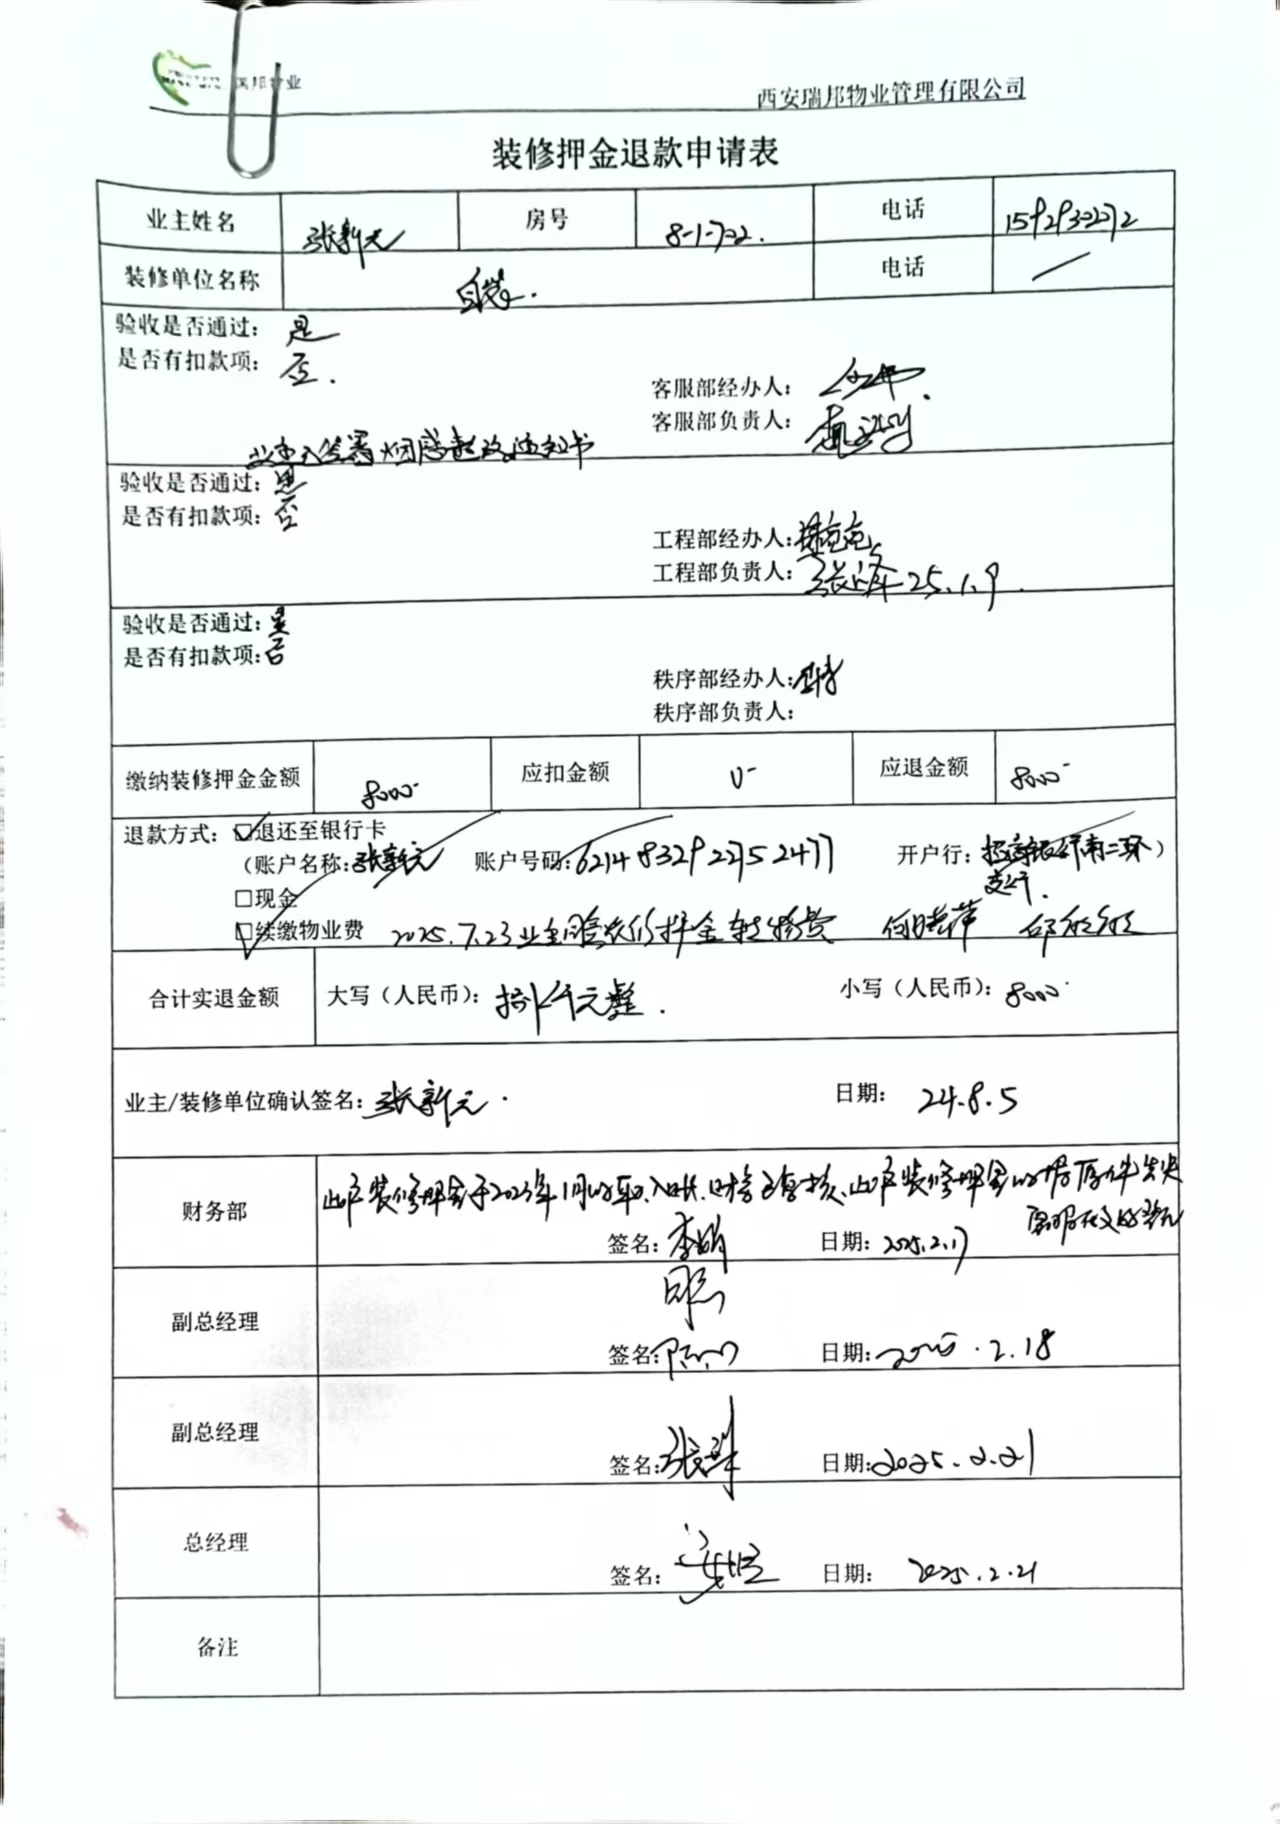 瑞邦物业
西安瑞邦物业管理有限公司
装修押金退款申请表
业主姓名 张新元 房号 8-1-722. 电话 15929322272
装修单位名称 自装. 电话 /
验收是否通过: 是
是否有扣款项: 否.
客服部经办人:
客服部负责人:
业主已签署烟感整改通知书
验收是否通过: 是
是否有扣款项: 否
工程部经办人:
工程部负责人: 张泽 25.1.9.
验收是否通过: 是
是否有扣款项: 否
秩序部经办人:
秩序部负责人:
缴纳装修押金金额 8000 应扣金额 0 应退金额 8000
退款方式: 退还至银行卡
(账户名称: 张新元 账户号码: 6214832922752477 开户行: 招商银行南二环支行.)
□现金
续缴物业费 2025.7.23业主同意装修押金转物费 何晓萍
合计实退金额 大写(人民币): 捌仟元整. 小写(人民币): 8000
业主/装修单位确认签名: 张新元. 日期: 24.8.5
财务部 此户装修押金于2023年1月收取、入账、财务已复核、此户装修押金收据原件丢失
签名: 李娟 日期: 2025.2.17
副总经理
签名: 日期: 2025.2.18
副总经理
签名: 日期: 2025.2.21
总经理
签名: 日期: 2025.2.21
备注